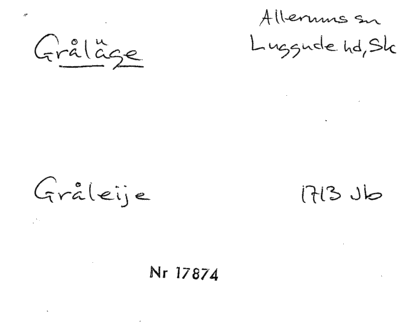 Gråläge
Allerums sn
Luggude hd, Sk
Gråleije
1713 Jb
Nr 17874